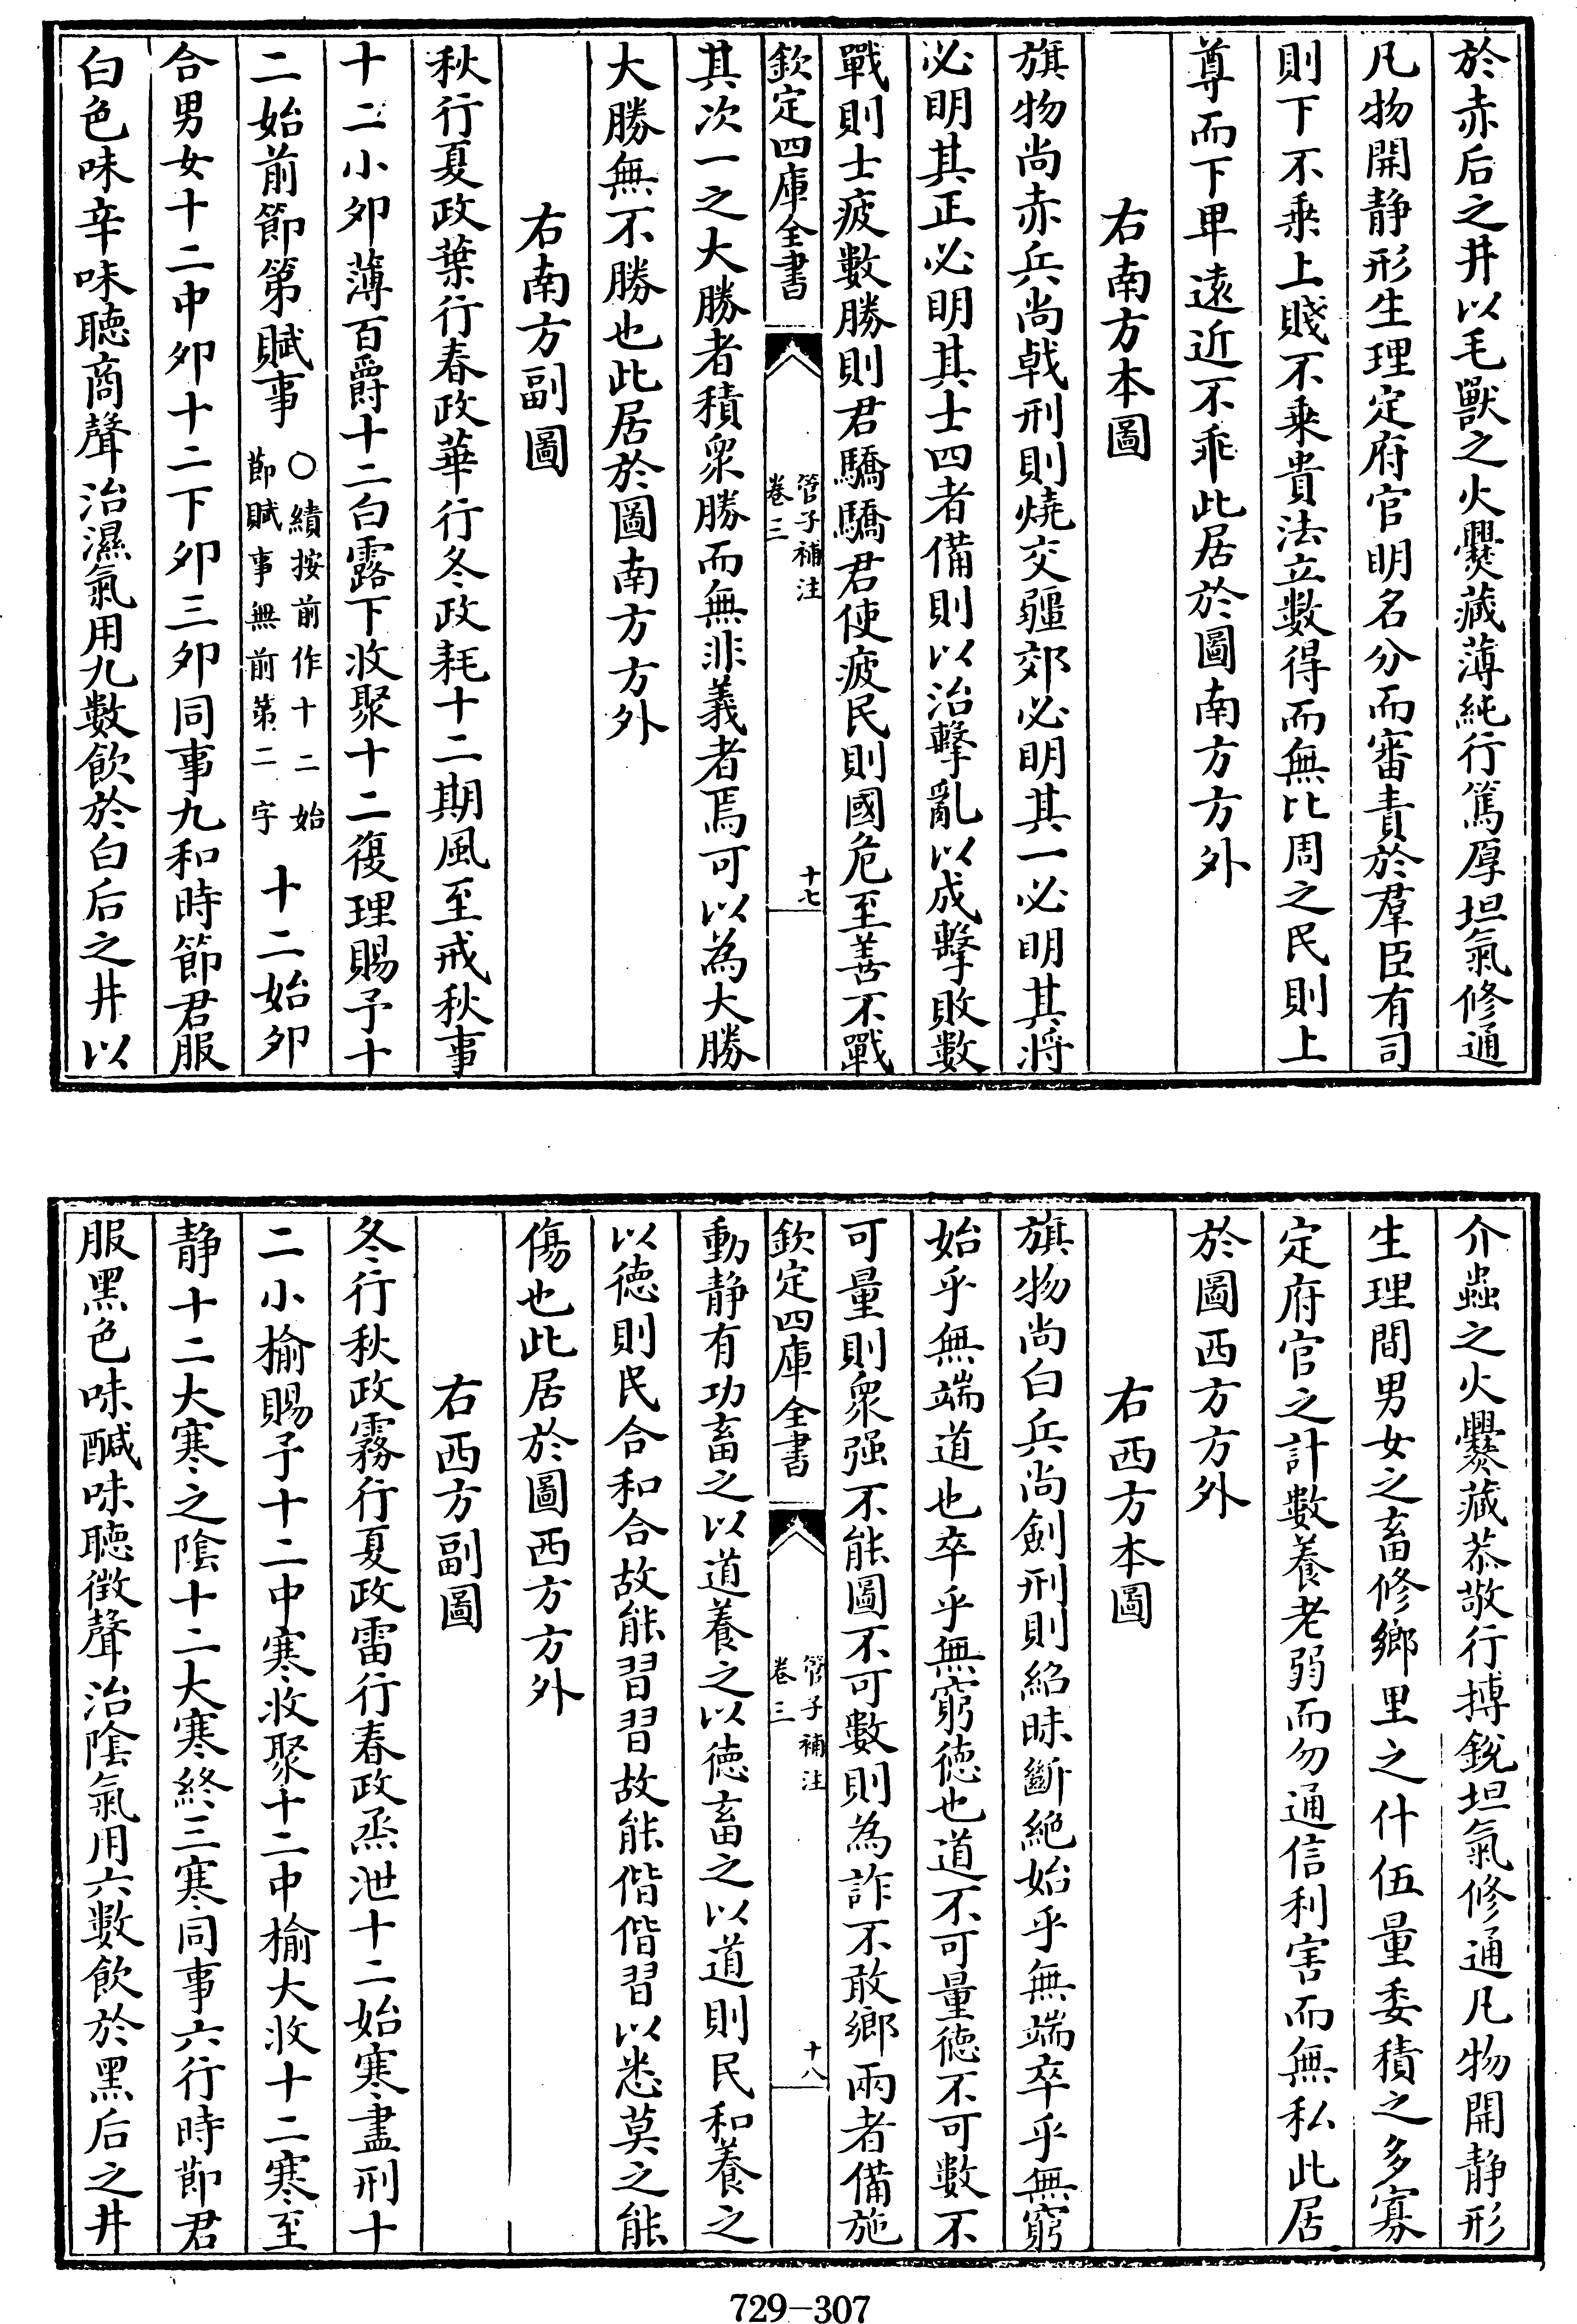 於赤后之井以毛獸之火爨藏薄純行篤厚坦氣修通
凡物開静形生理定府官明名分而審責於羣臣有司
則下不乗上賤不乗貴法立數得而無比周之民則上
尊而下卑逺近不乖此居於圖南方方外
右南方本圖
旗物尚赤兵尚戟刑則燒交疆郊必明其一必明其將
必明其正必明其士四者備則以治擊亂以成擊敗數
戰則士疲數勝則君驕驕君使疲民則國危至善不戰
欽定四庫全書
管子補注
卷三
十七
其次一之大勝者積衆勝而無非義者焉可以為大勝
大勝無不勝也此居於圖南方方外
右南方副圖
秋行夏政葉行春政華行冬政耗十二期風至戒秋事
十二小夘薄百爵十二白露下收聚十二復理賜予十
二始前節第賦事
○績按前作十二始
節賦事無前第二字
十二始夘
合男女十二中夘十二下夘三夘同事九和時節君服
白色味辛味聴商聲治濕氣用九數飲於白后之井以
介蟲之火爨藏恭敬行搏鋭坦氣修通凡物開静形
生理間男女之畜修鄉里之什伍量委積之多寡
定府官之計數養老弱而勿通信利害而無私此居
於圖西方方外
右西方本圖
旗物尚白兵尚劍刑則紹昧斷絶始乎無端卒乎無窮
始乎無端道也卒乎無窮徳也道不可量徳不可數不
可量則衆强不能圖不可數則為詐不敢鄉兩者備施
欽定四庫全書
管子補注
卷三
十八
動静有功畜之以道養之以徳畜之以道則民和養之
以徳則民合和合故能習習故能偕偕習以悉莫之能
傷也此居於圖西方方外
右西方副圖
冬行秋政霧行夏政雷行春政烝泄十二始寒盡刑十
二小榆賜予十二中寒收聚十二中榆大收十二寒至
静十二大寒之陰十二大寒終三寒同事六行時節君
服黑色味鹹味聴徴聲治陰氣用六數飲於黑后之井
729—307